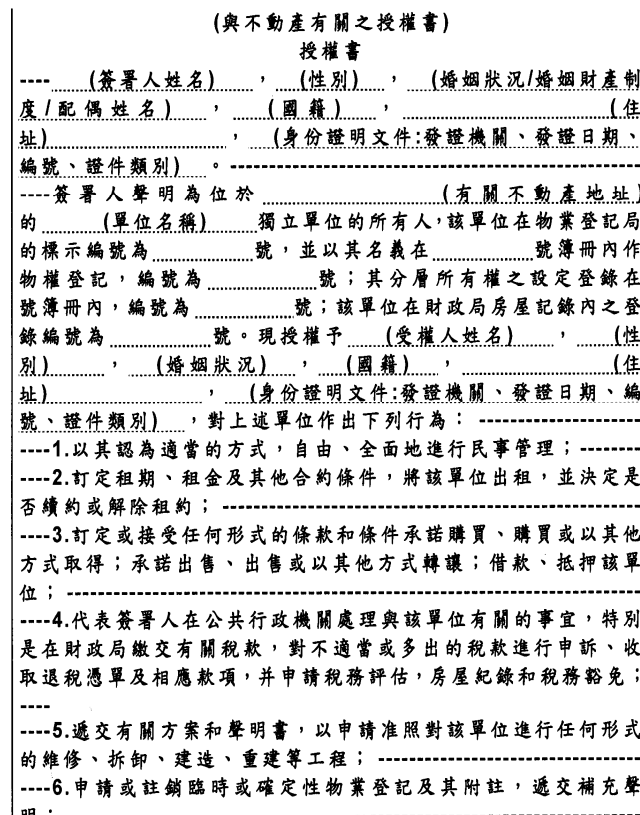 (與不動產有關之授權書)
授權書
---- (簽署人姓名) ， (性別) ， (婚姻狀況/婚姻財產制
度/配偶姓名) ， (國籍) ， (住
址) ， (身份證明文件:發證機關、發證日期、
編號、證件類別) 。------------------------------------------
----簽署人聲明為位於 (有關不動產地址)
的 (單位名稱) 獨立單位的所有人，該單位在物業登記局
的標示編號為 號，並以其名義在 號簿冊內作
物權登記，編號為 號；其分層所有權之設定登錄在
號簿冊內，編號為 號；該單位在財政局房屋記錄內之登
錄編號為 號。現授權予 (受權人姓名) ， (性
別) ， (婚姻狀況) ， (國籍) ， (住
址) ， (身份證明文件:發證機關、發證日期、編
號、證件類別) ，對上述單位作出下列行為： ----------------
----1.以其認為適當的方式，自由、全面地進行民事管理；---------
----2.訂定租期、租金及其他合約條件，將該單位出租，並決定是
否續約或解除租約；------------------------------------------
----3.訂定或接受任何形式的條款和條件承諾購買、購買或以其他
方式取得；承諾出售、出售或以其他方式轉讓；借款、抵押該單
位；----------------------------------------------------------
----4.代表簽署人在公共行政機關處理與該單位有關的事宜，特別
是在財政局繳交有關稅款，對不適當或多出的稅款進行申訴、收
取退稅憑單及相應款項，并申請稅務評估，房屋紀錄和稅務豁免；
----
----5.遞交有關方案和聲明書，以申請准照對該單位進行任何形式
的維修、拆卸、建造、重建等工程；--------------------------
----6.申請或註銷臨時或確定性物業登記及其附註，遞交補充聲
明；----------------------------------------------------------